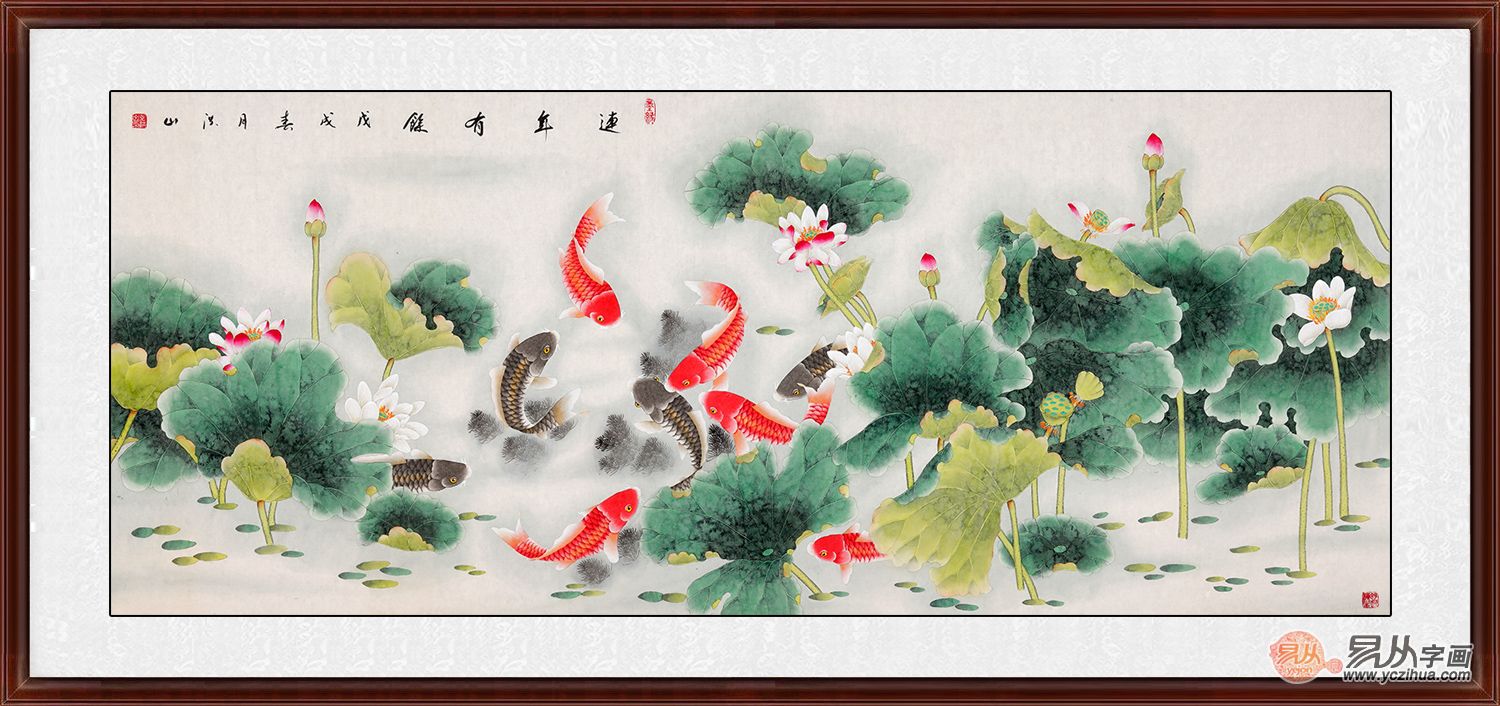 連年有餘戊戌春月洪山
易从
易从字画
www.yczihua.com